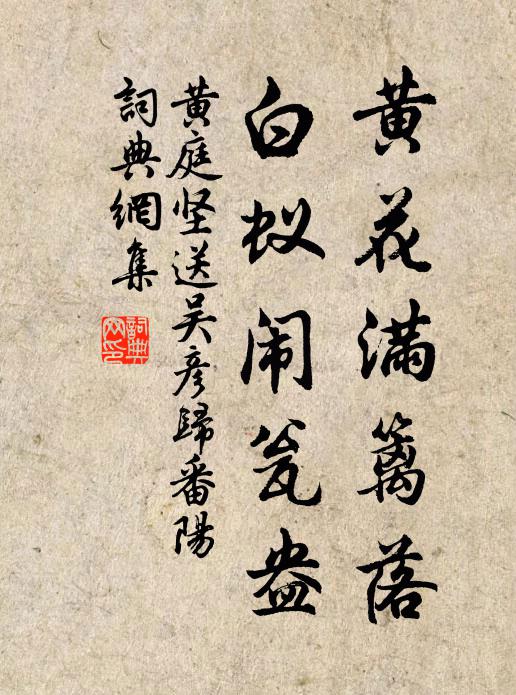 黄花满篱落
白蚁闹瓮盎
黄庭坚送吴彦歸番陽
詞典網集
詞典網印